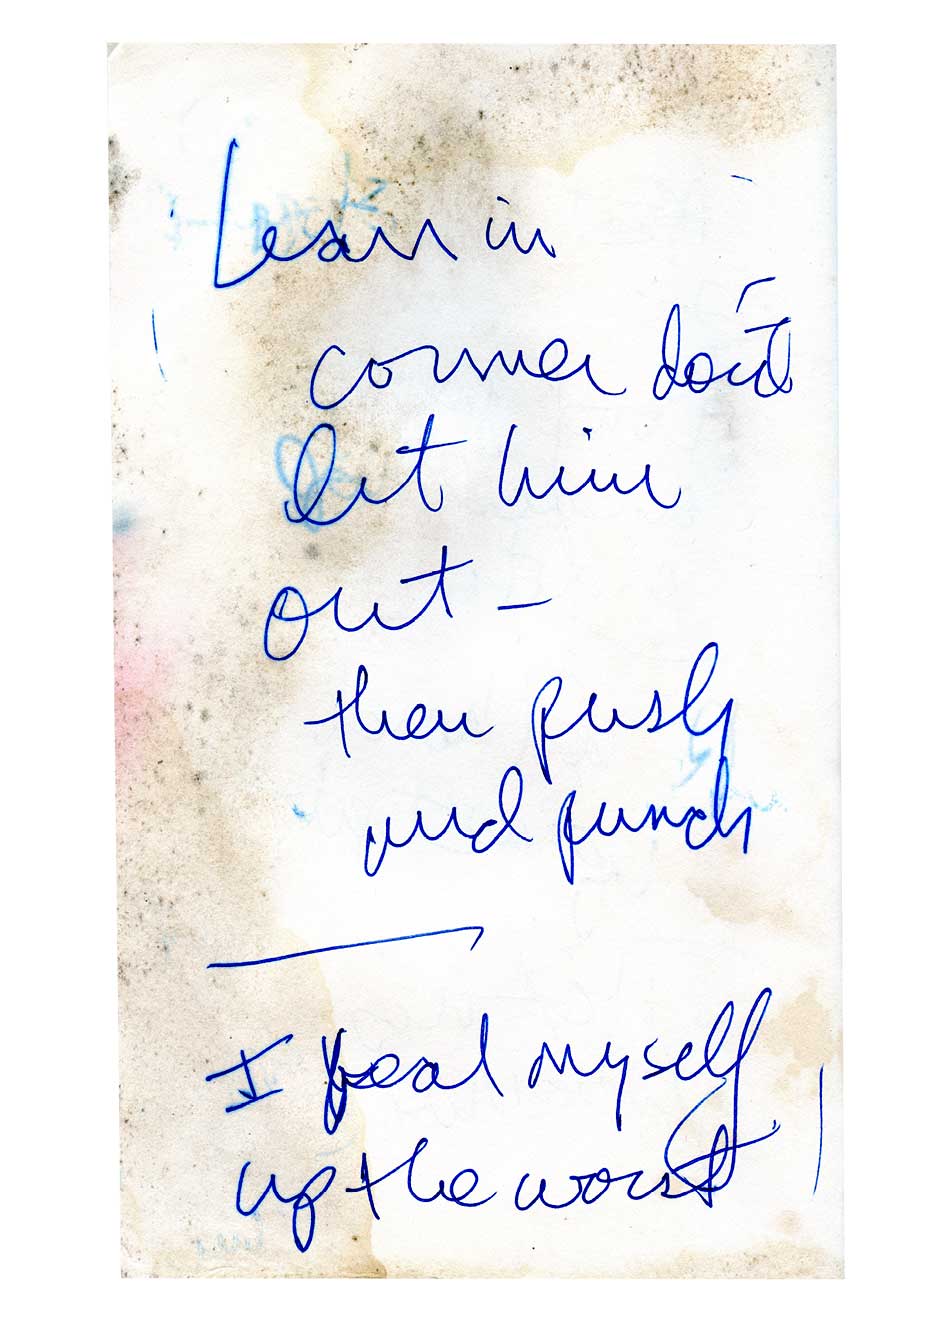 Lean in
corner don't
let him
out –
then push
and punch
I beat myself
up the worst